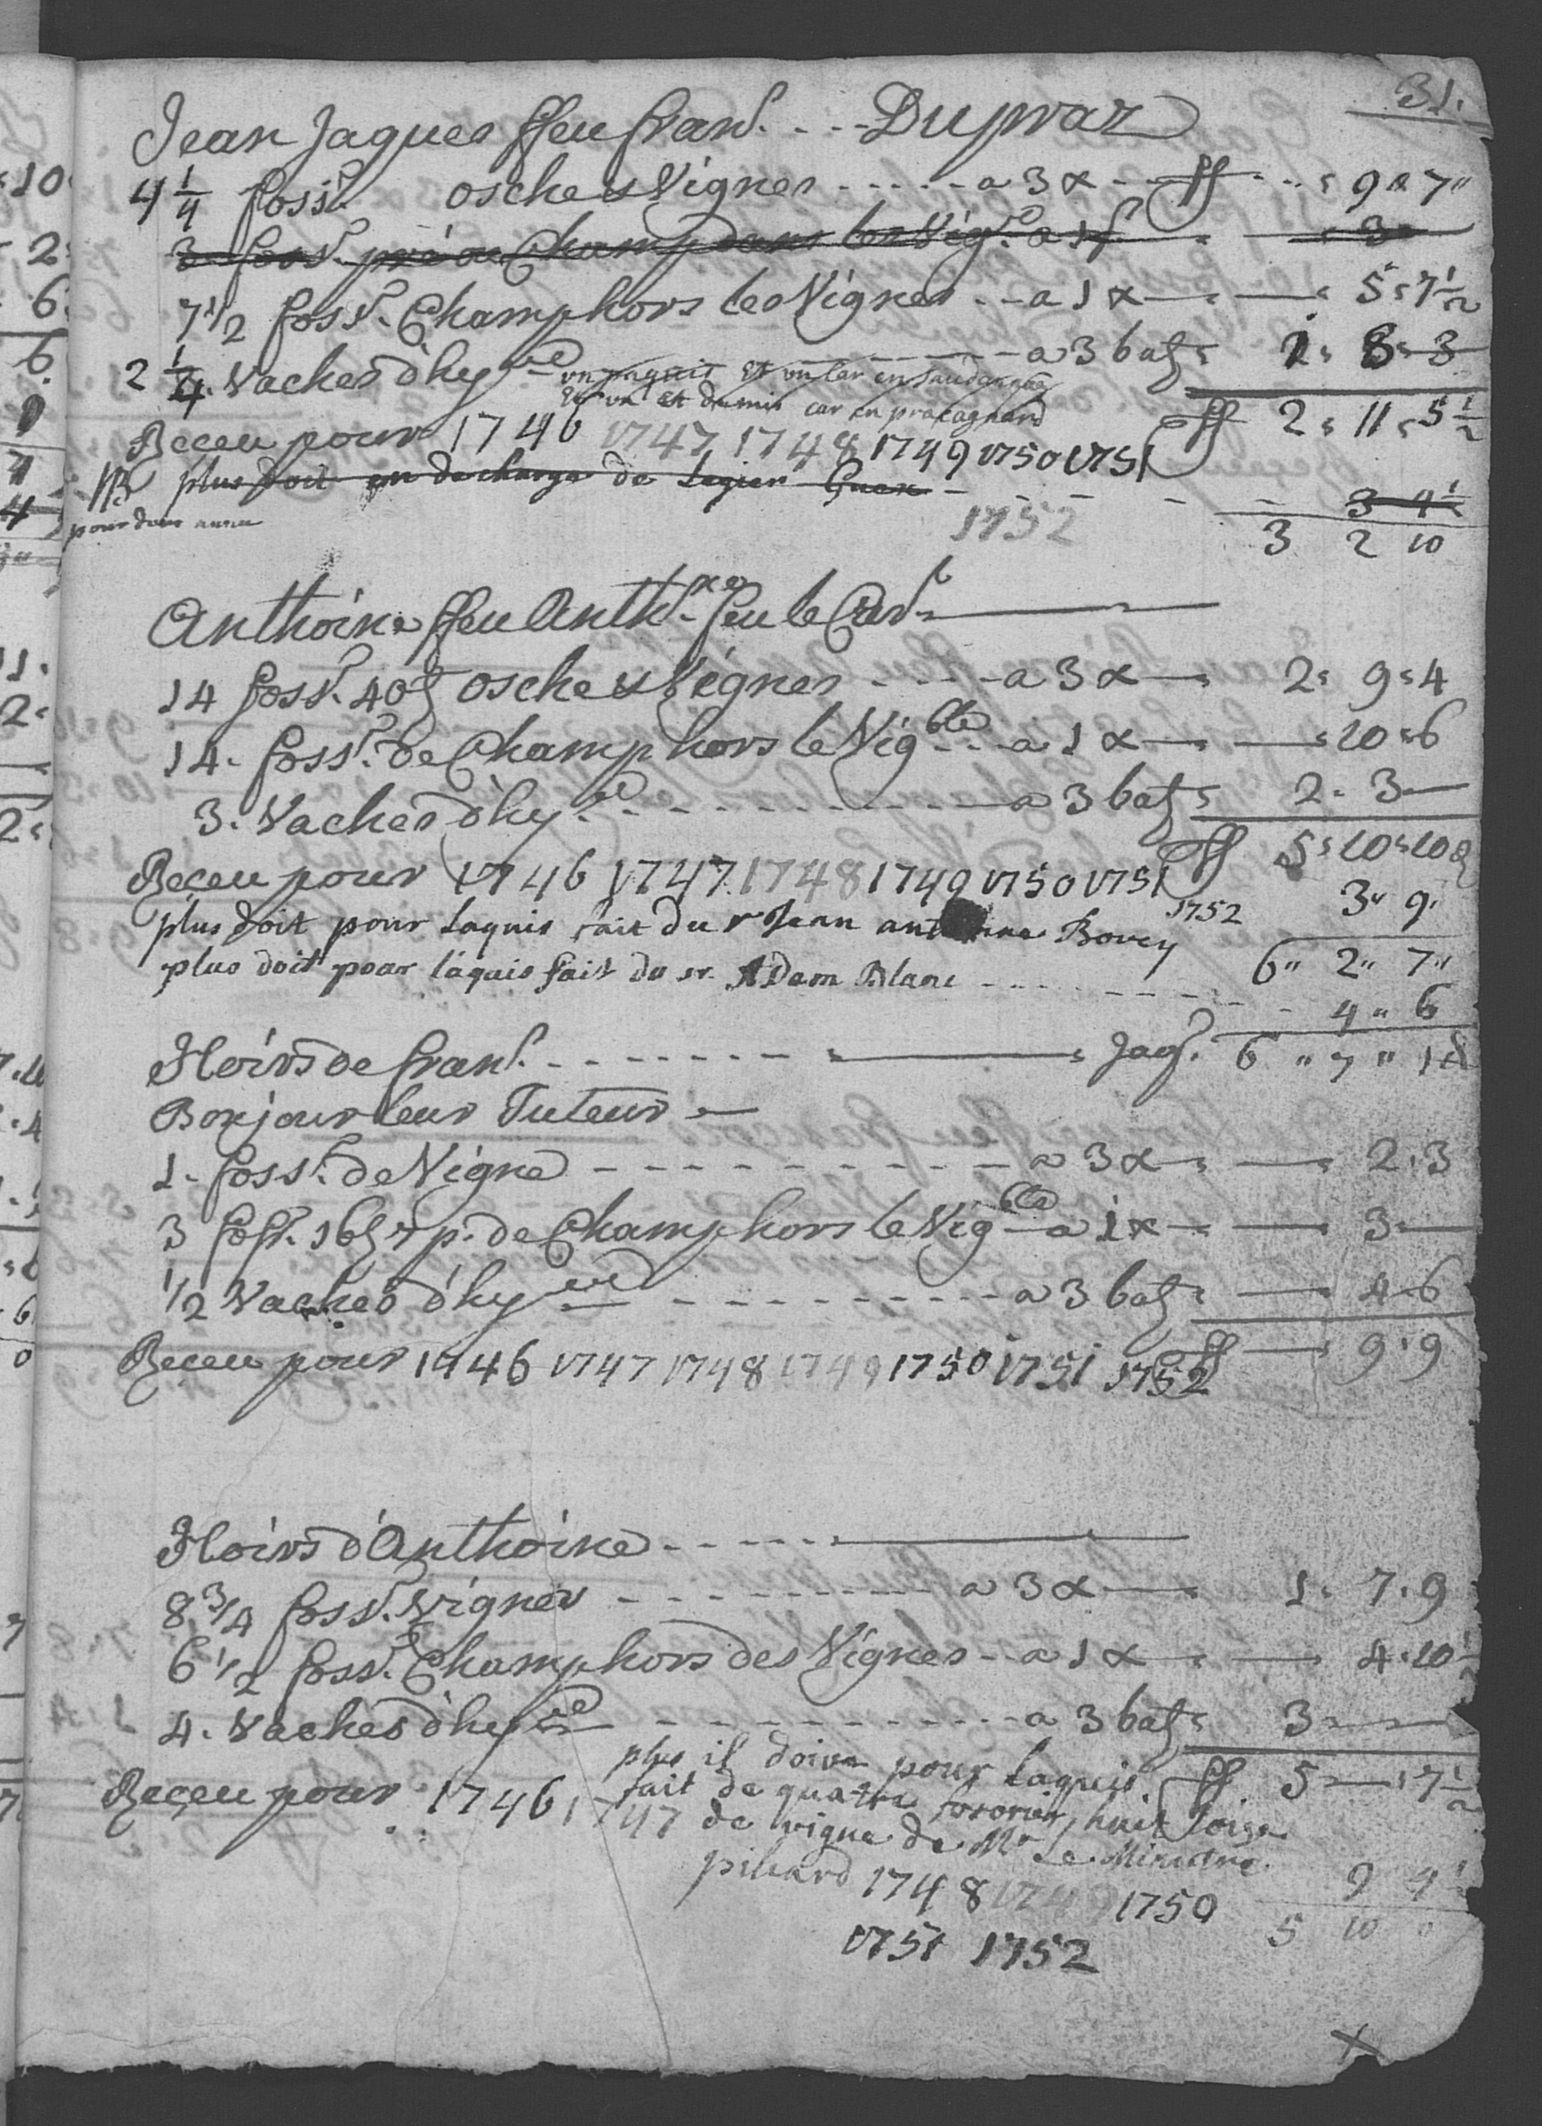 31.
Jean Jaques ffeu fran.s ... Dupraz
4 1/4 foss.r osche & Vignes ..... a 3 x .. ff ... 9 " 7"
3 foss.r pré ou Champ dans les Vig.es a 1 f 3
7 1/2 foss.r Champ hors les Vignes .. a 1 x 5 " 7 1/2
2 1/4 Vaches d'hy.re a 3 batz 1 " 8 " 3
un aquit et un car en
et un et demis car en pracagnard
Reçeu pour 1746 1747 1748 1749 1750 1751 ff 2 " 11 " 5 1/2
NB plus doit en decharge de Legier Guex 3 4 1/2
pour dans annee
1752 3 2 10
Anthoine ffeu Anth.ne feu le
14 foss.r 40 t osche & Vignes .... a 3 x 2 " 9 " 4
14. foss.r de Champ hors le Vig.ble .. a 1 x 10 " 6
3. Vaches d'hy.re a 3 batz 2 " 3
Reçeu pour 1746 1747 1748 1749 1750 1751 ff 5 " 10 " 10
1752 3" 9"
plus doit pour laquis fait du r Jean antoinne Bovey 6" 2" 7"
plus doit pour laquis fait du sr. Adam Blanc 4 " 6
Hoirs de fran.s Jaq.s 6 " 7 " 1
Bonjour leur Tuteur
1. foss.r de Vigne a 3 x 2 " 3
3 foss.r 16 t 7 p. de Champ hors le Vig.ble a 1 x 3
1/2 Vaches d'hy.re a 3 batz 4 " 6
Reçeu pour 1746 1747 1748 1749 1750 1751 1752 ff 9 " 9
Hoirs d'Anthoine
8 3/4 foss.r Vignes a 3 x 1 " 7 " 9
6 1/2 foss.r Champ hors des Vignes .. a 1 x 4 " 10
4. Vaches d'hy.re a 3 batz 3
plus il doive pour laquis ff 5 " 7 1/2
Reçeu pour 1746 1747 fait de quatre fosorier huit toise
de vigne de Mr Le Ministre
pilliard 1748 1749 1750 9 4 1/2
1751 1752 5 10
x